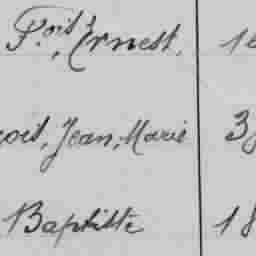 F.ois, Ernest, 16
çois, Jean, Marie 3
Baptiste 18